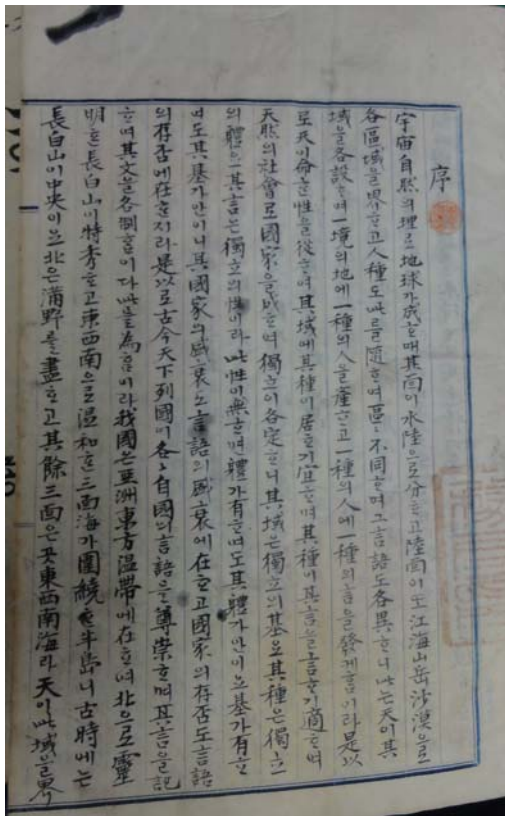 序
宇宙自然의理로地球가成ᄒᆞ매其面이水陸으로分ᄒᆞ고陸面이또江海山岳沙漠으로
各區域을界ᄒᆞ고人種도此를隨ᄒᆞ여區々不同ᄒᆞ며그言語도各異ᄒᆞ니此는天이其
域을各設ᄒᆞ여一境의地에一種의人을產ᄒᆞ고一種의人에一種의言을發케홈이라是以
로天이命ᄒᆞᆫ性을從ᄒᆞ여其域에其種이居ᄒᆞ기宜ᄒᆞ며其種이其言을言ᄒᆞ기適ᄒᆞ여
天然의社會로國家를成ᄒᆞ여獨立이各定ᄒᆞ니其域은獨立의基요其種은獨立
의體요其言은獨立의性이라此性이無ᄒᆞ면體가有ᄒᆞ여도其體가안이요基가有ᄒᆞ
여도其基가안이니其國家의盛衰도言語의盛衰에在ᄒᆞ고國家의存否도言語
의存否에在ᄒᆞᆫ지라是以로古今天下列國이各々自國의言語를尊崇ᄒᆞ며其言을記
ᄒᆞ여其文을各制홈이다此를為홈이라我國은亞洲東方溫帶에在ᄒᆞ여北으로靈
明ᄒᆞᆫ長白山이特秀ᄒᆞ고東西南으로溫和ᄒᆞᆫ三面海가圍繞ᄒᆞᆫ半島니古時에는
長白山이中央이요北은滿野를盡ᄒᆞ고其餘三面은곳東西南海라天이此域을界